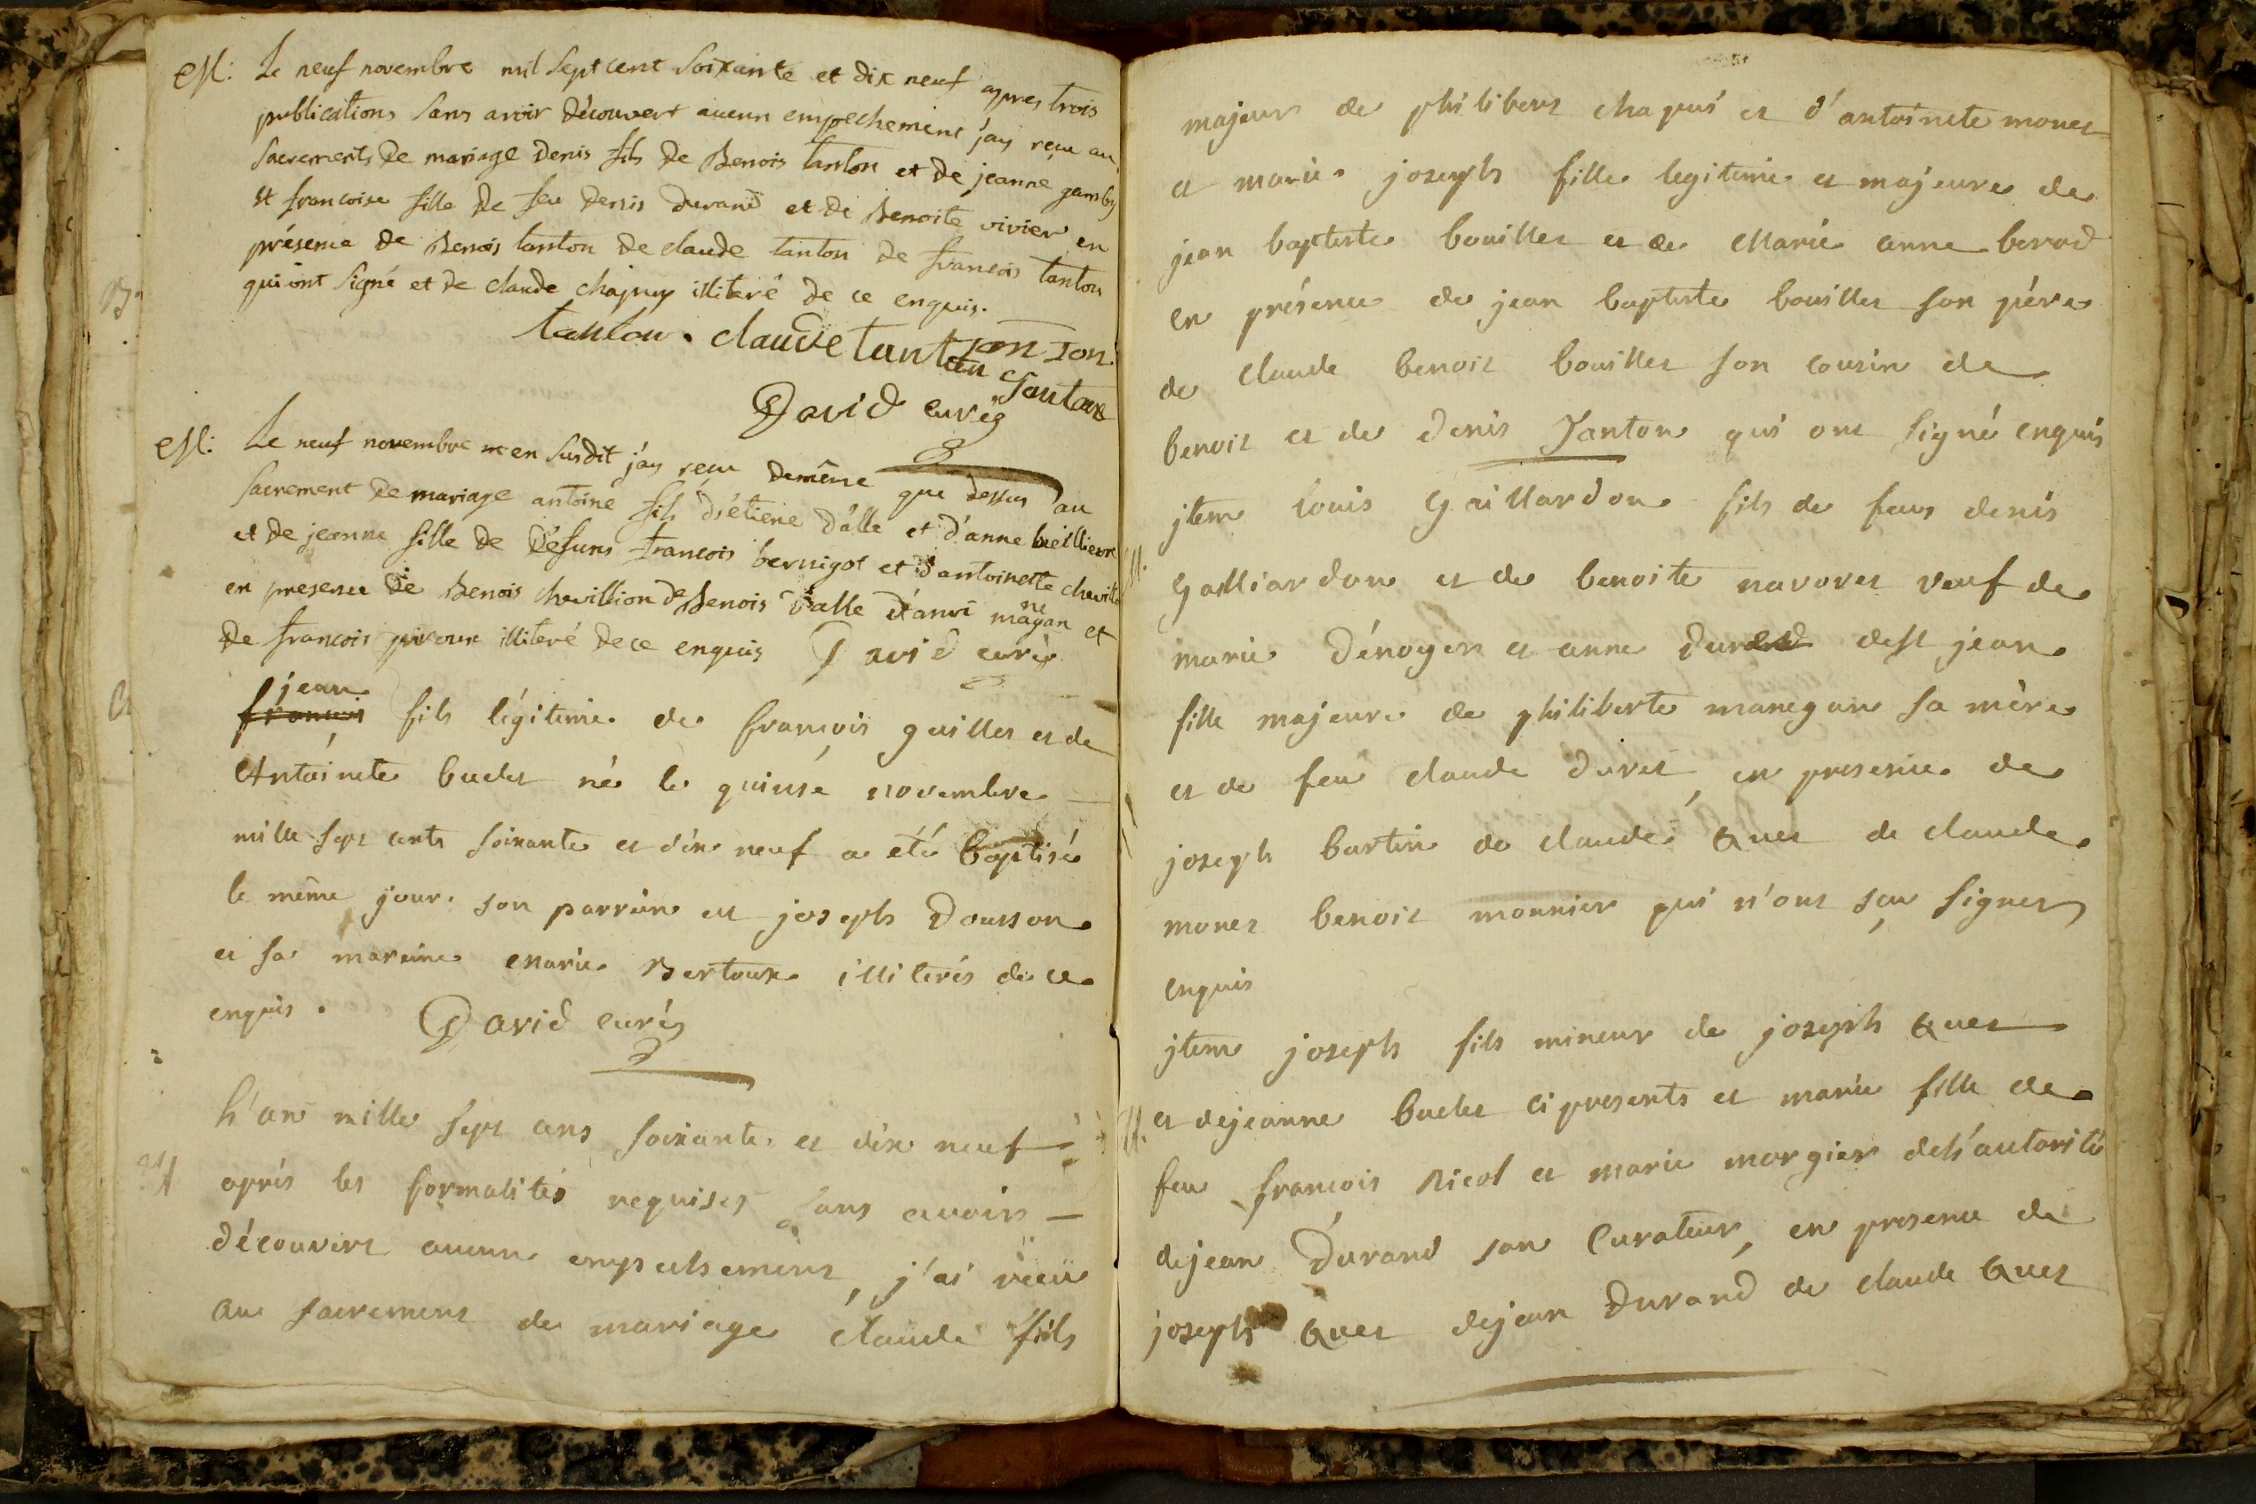 M: Le neuf novembre mil sept cent soixante et dix neuf apres trois
publications sans avoir découvert aucun empechement j'ay reçu au
sacrements de mariage denis fils de Benois tanton et de jeanne gamby
et francoise fille de feu denis durand et de Benoite vivier en
présence de Benois tanton de claude tanton de francois tanton
qui ont signé et de claude chapuy illiteré de ce enquis.
tanton . claude tanton
David curé
M: Le neuf novembre susdit j'ay reçu demême que dessus au
sacrement de mariage antoine fils d'étiene dalle et d'anne
et de jeanne fille de défuns francois bernigot et d'antoinette
en presence de Benois chevillion de Benois dalle et
de francois illiteré de ce enquis David curé
jean
francois fils légitime de françois guillet et de
Antoinete buclet né le quinsé novembre
mille sept cents soixante et dix neuf a été baptisé
le même jour. son parrain est joseph Dousson
et sa maraine marie Bertoux illiterés de ce
enquis . David curé
L'an mille sept cens soixante et dix neuf
M après les formalités requises sans avoir
découvert aucun empechement, j'ai reçu
au sacrement de mariage claude fils
majeur de philibert chapui et d'antoinete monet
et marie joseph fille legitime et majeure de
jean baptiste bouillet et de Marie anne berod
en présence de jean baptiste bouillet son père
de claude benoit bouillet son cousin de
benoit et de denis Janton qui ont signé enquis
jtem louis Gaillardon fils de feus denis
M. Galliardon et de benoite navoret veuf de
marie Dénoyer et anne de st jean
fille majeure de philiberte manegan sa mère
et de feu claude duret, en presence de
joseph bartin de claude Quet de claude
monet benoit monnier qui n'ont sçu signer
enquis
jtem joseph fils mineur de joseph Quet
M. et de jeanne buclet ci presents et marie fille de
feu françois Nicol et marie morgier de l'autorité
de jean Durand son Curateur, en presence de
joseph Quet de jean Durand de claude Quet